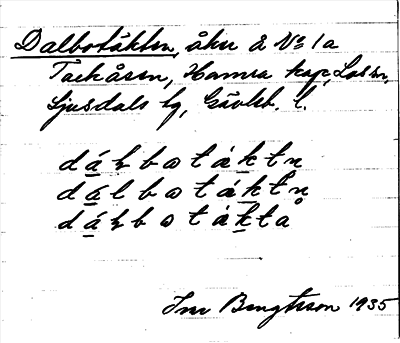 Dalbotäkten, åker å No 1a
Tackåsen, Hamra kap, Los sn,
Ljusdals tg, Gävleb. l.
dáɽbotáktn̥
dálbotáktn̥
dáɽbotáktå
Ivar Bengtsson 1935